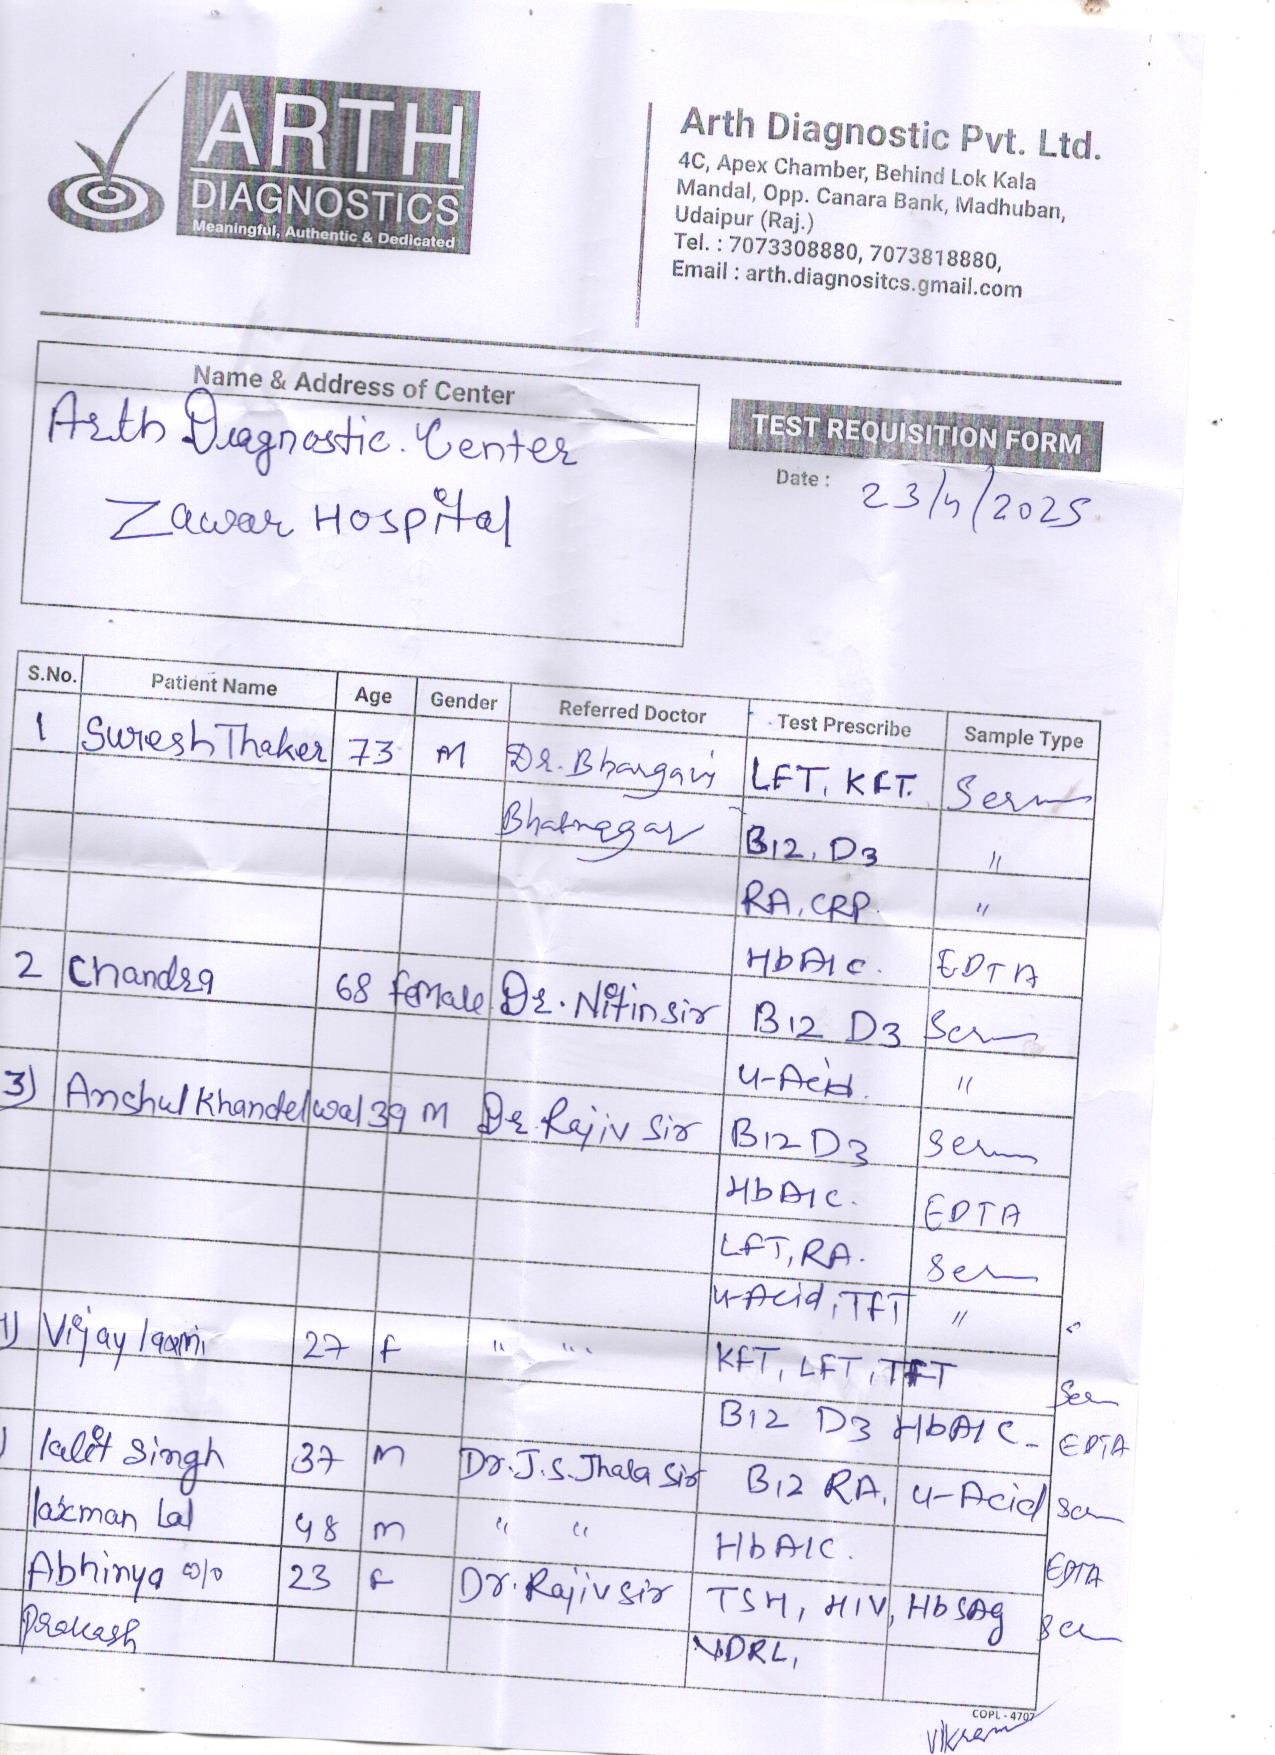 ARTH
DIAGNOSTICS
Meaningful, Authentic & Dedicated
Arth Diagnostic Pvt. Ltd.
4C, Apex Chamber, Behind Lok Kala
Mandal, Opp. Canara Bank, Madhuban,
Udaipur (Raj.)
Tel. : 7073308880, 7073818880,
Email : arth.diagnositcs.gmail.com
Name & Address of Center
Arth Diagnostic. Center
Zawar Hospital
TEST REQUISITION FORM
Date : 23/4/2025
S.No. Patient Name Age Gender Referred Doctor Test Prescribe Sample Type
1 Suresh Thaker 73 M Dr. Bhargavi LFT, KFT. Serum
Bhatnagar B12, D3 "
RA, CRP. "
HbA1c. EDTA
2 Chandra 68 female Dr. Nitin sir B12 D3 Serum
U-Acid. "
3) Anshul Khandelwal 39 M Dr. Rajiv Sir B12 D3 Serum
HbA1c. EDTA
LFT, RA. Serum
U-Acid, TFT "
4) Vijay laxmi 27 F " " KFT, LFT, TFT Serum
B12 D3 HbA1C - EDTA
) lalit Singh 37 M Dr. J.S. Jhala Sir B12 RA, U-Acid Serum
laxman Lal 48 m " " HbA1C. EDTA
Abhinya w/o 23 F Dr. Rajiv sir TSH, HIV, HbSAg Serum
Prakash VDRL,
COPL - 4707
Vikram